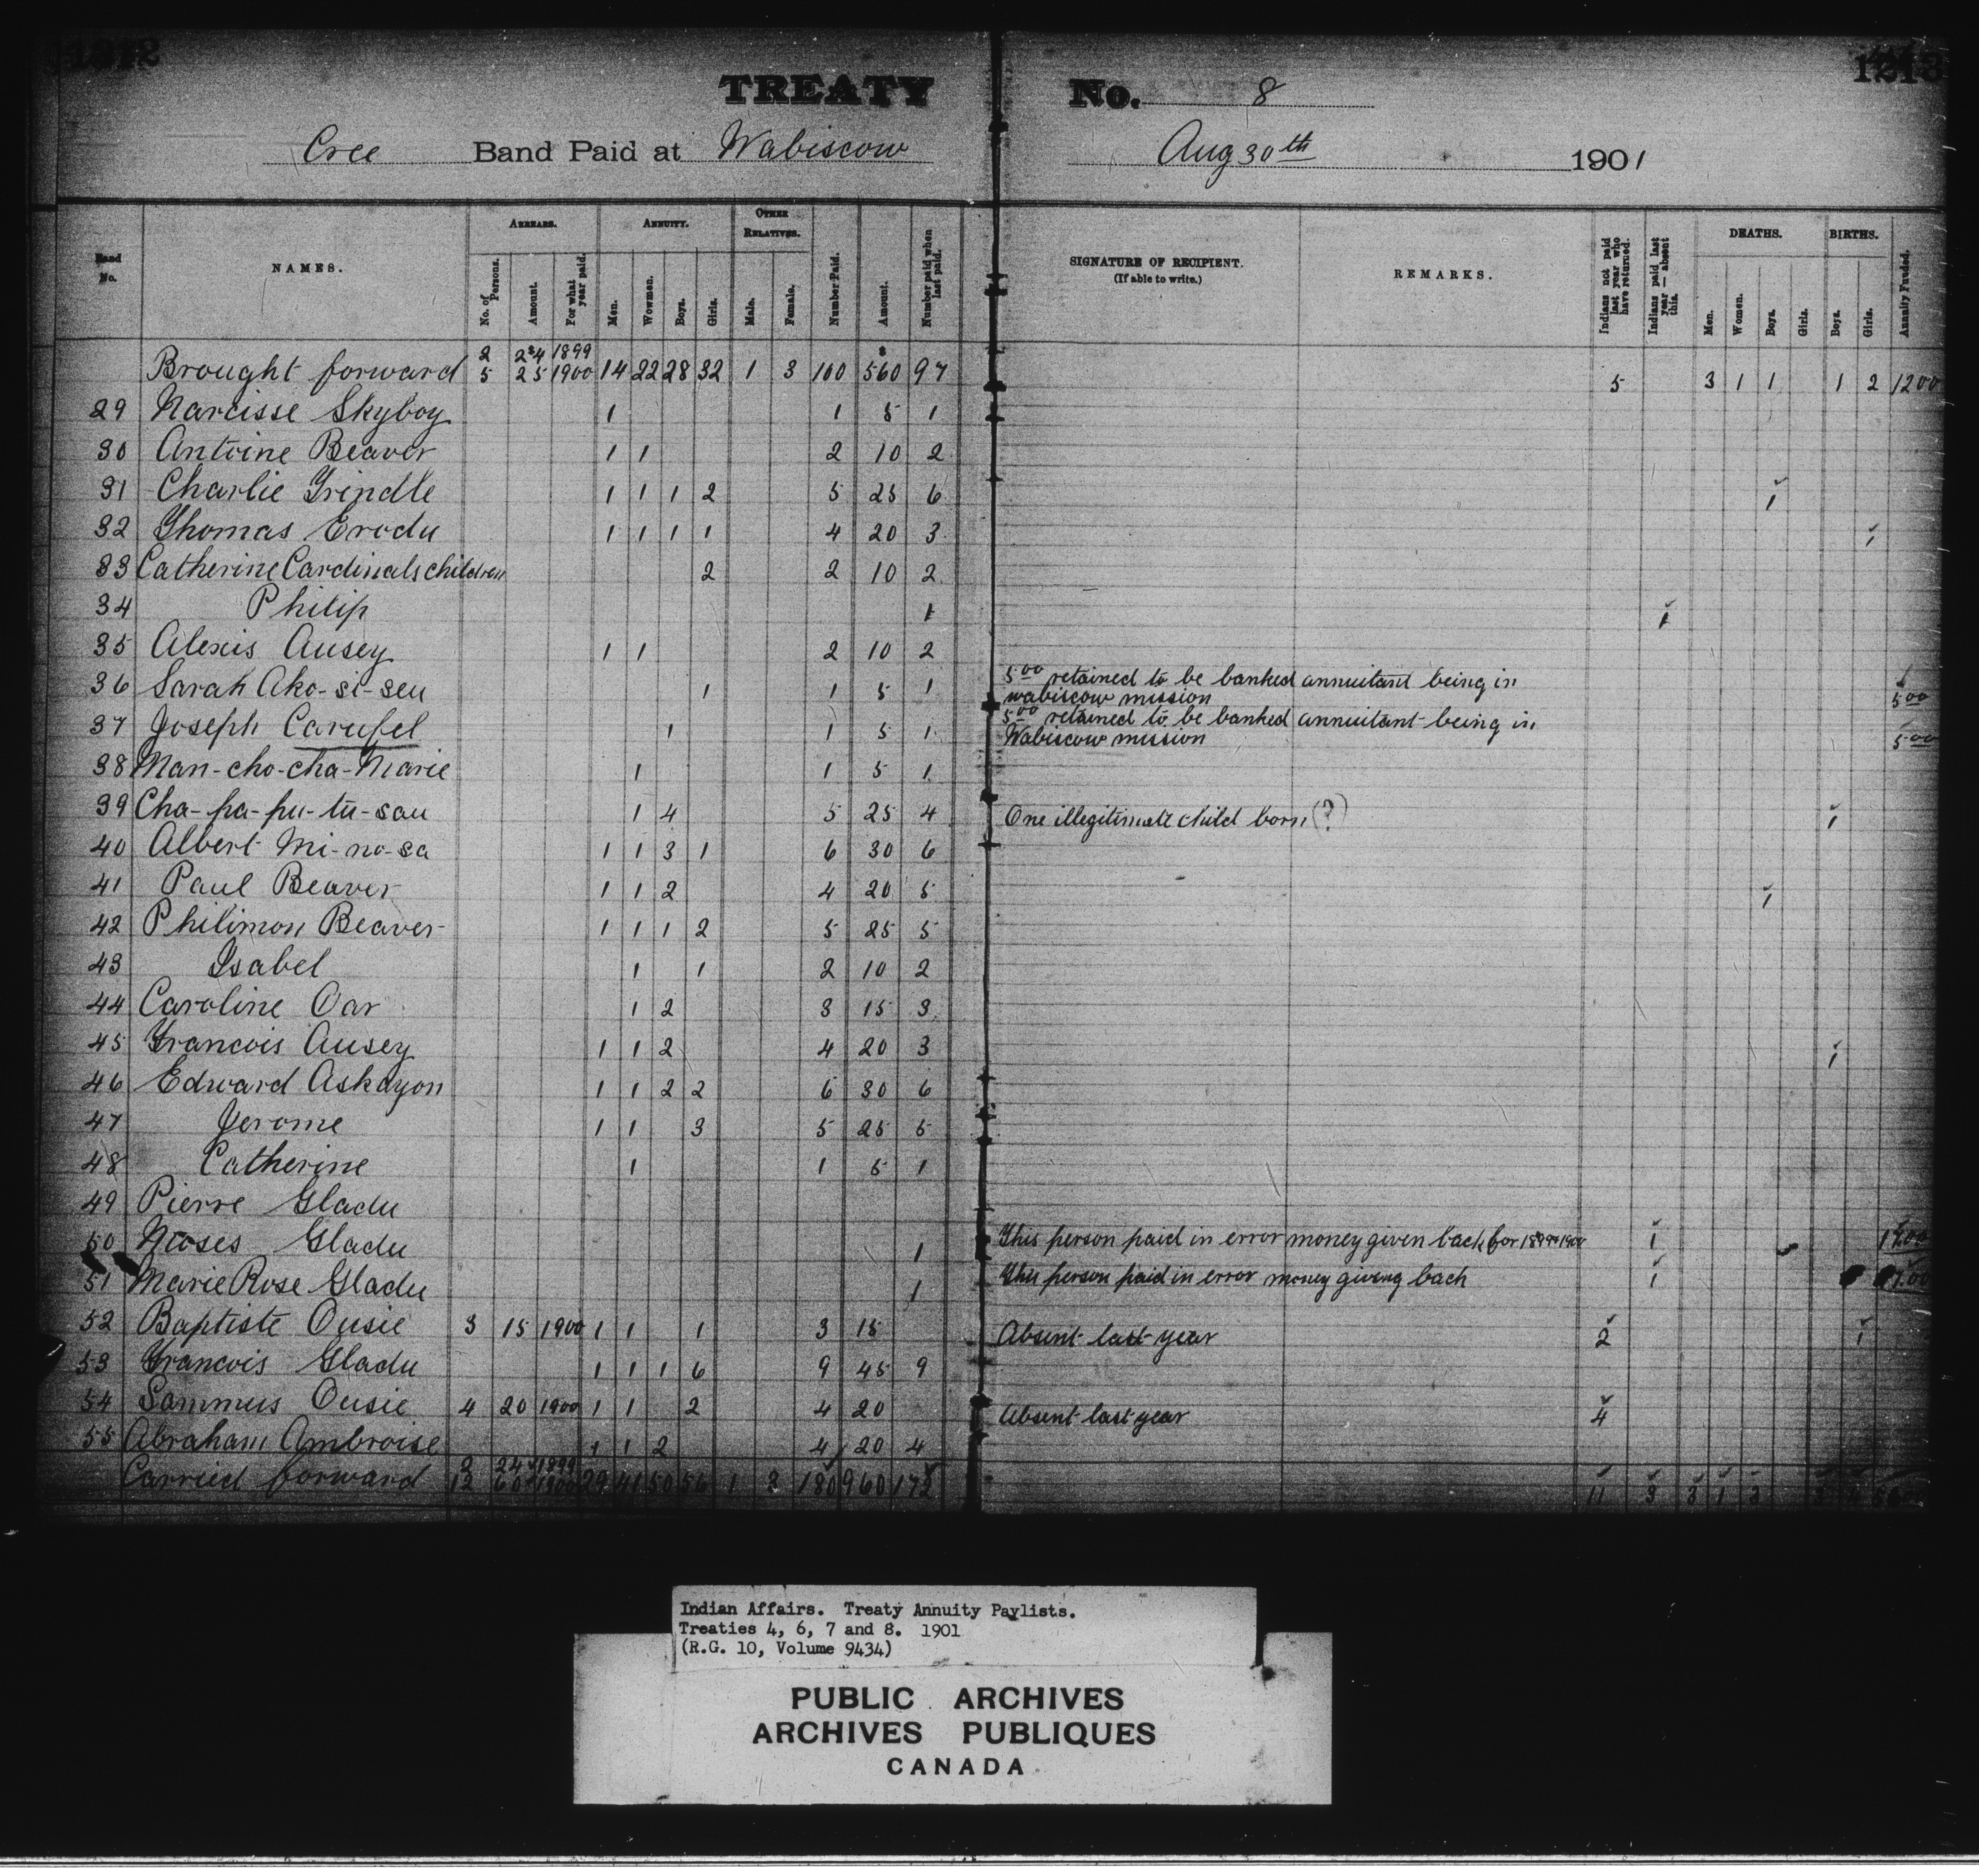 1212
1213
TREATY No. 8
Cree Band Paid at Wabiscow Aug 30th 1901
Band No.
NAMES.
ARREARS.
No. of Persons.
Amount.
For what year paid.
ANNUITY.
Men.
Wowmen.
Boys.
Girls.
OTHER RELATIVES.
Male.
Female.
Number Paid.
Amount.
Number paid when last paid.
SIGNATURE OF RECIPIENT.
(If able to write.)
REMARKS.
Indians not paid last year who have returned.
Indians paid last year — absent this.
DEATHS.
Men.
Women.
Boys.
Girls.
BIRTHS.
Boys.
Girls.
Annuity Funded.
2 24 1899
Brought forward 5 25 1900 14 22 28 32 1 3 100 $560 97 5 3 1 1 1 2 1200
29 Narcisse Skyboy 1 1 5 1
30 Antoine Beaver 1 1 2 10 2
31 Charlie Grindle 1 1 1 2 5 25 6 1
32 Thomas Erodu 1 1 1 1 4 20 3 1
33 Catherine Cardinals children 2 2 10 2
34 Philip 1 1
35 Alexis Ausey 1 1 2 10 2
36 Sarah Ako-si-seu 1 1 5 1 5 00 retained to be banked annuitant being in
wabiscow mission 5 00
37 Joseph Carufel 1 1 5 1 5 00 retained to be banked annuitant being in
Wabiscow mission 5 00
38 Man-cho-cha-Marie 1 1 5 1
39 Cha-pa-pu-tu-sau 1 4 5 25 4 One illegitimate child born (?) 1
40 Albert Mi-no-sa 1 1 3 1 6 30 6
41 Paul Beaver 1 1 2 4 20 5 1
42 Philimon Beaver 1 1 1 2 5 25 5
43 Isabel 1 1 2 10 2
44 Caroline Oar 1 2 3 15 3
45 Francois Ausey 1 1 2 4 20 3 1
46 Edward Askayon 1 1 2 2 6 30 6
47 Jerome 1 1 3 5 25 5
48 Catherine 1 1 5 1
49 Pierre Gladu
50 Moses Gladu 1 This person paid in error money given back for 1899 1900 1
51 Marie Rose Gladu 1 This person paid in error money giving back 1
52 Baptiste Ousie 3 15 1900 1 1 1 3 15 Absent last year 2 1
53 Francois Gladu 1 1 1 6 9 45 9
54 Sammus Ousie 4 20 1900 1 1 2 4 20 Absent last year 4
55 Abraham Ambroise 1 1 2 4 20 4
2 24 1899
Carried forward 12 60 1900 29 41 50 56 1 3 180 960 172 11 3 3 1 3
Indian Affairs. Treaty Annuity Paylists.
Treaties 4, 6, 7 and 8. 1901
(R.G. 10, Volume 9434)
PUBLIC ARCHIVES
ARCHIVES PUBLIQUES
CANADA